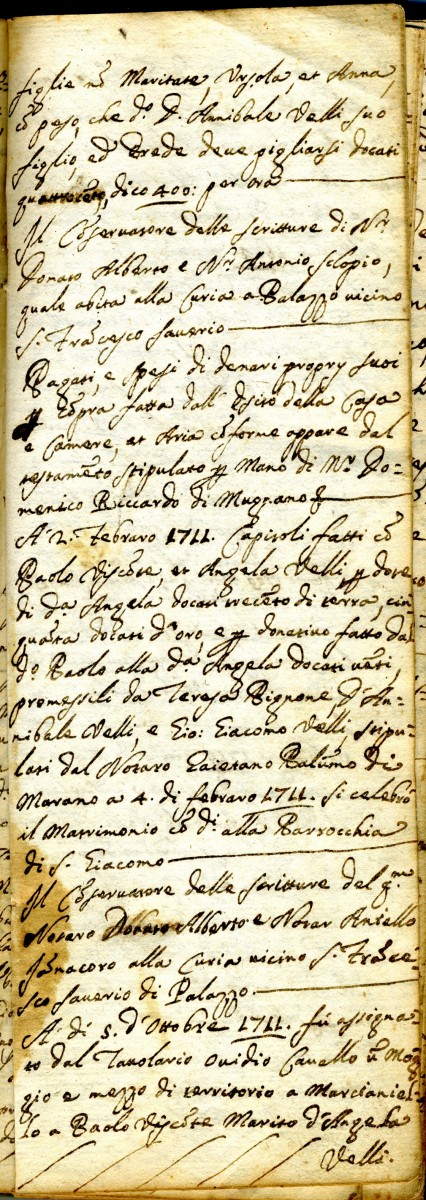 figlie nō Maritate, Ursola, et Anna,
cō peso, che dº D. Annibale Velli suo
figlio, ed Erede deve pigliarsi docati
quattrocēto, dico 400: per ora
Il Cōservatore delle scritture di Nʳ
Donato Alberto e Nʳ Antonio Sclopio,
quale abita alla Curia a Palazzo vicino
S. Frācesco Saverio
Pagati, e spesi di denari proprij suoi
ꝑ Cōpra fatta dall' Esito della Casa
e Camere, et Aria cōforme appare dal
testamēto stipulato ꝑ Mano di Nʳ Do=
menico Riccardo di Mugnano
A' 2. Febraro 1711. Capitoli fatti cō
Paolo Viscōte, et Angela Velli, ꝑ dote
di dª Angela docati trecēto di terra, cin
quāta docati d'oro, e ꝑ donativo fatto da
dº Paolo alla dª Angela docati vēti,
promessili da Teresa Pignone, d'An-
nibale Velli, e Gio: Giacomo Velli stipu-
lati dal Notaro Gaietano Palūmo di
Marano a 4. di febraro 1711. si celebrò
il Matrimonio cō dⁱ alla Parrocchia
di S. Giacomo
Il Cōservatore delle scritture del qᵐ
Notaro Donato Alberto e Notar Aniello
alla Curia vicino S. Frāce-
sco Saverio di Palazzo.
A' di 5. d'Ottobre 1711. fù assigna-
to dal Tavolario Ovidio Cavello ū Mog
gio e mezzo di territorio a Marcianiel-
lo a Paolo Viscōte Marito d'Angela
Velli.